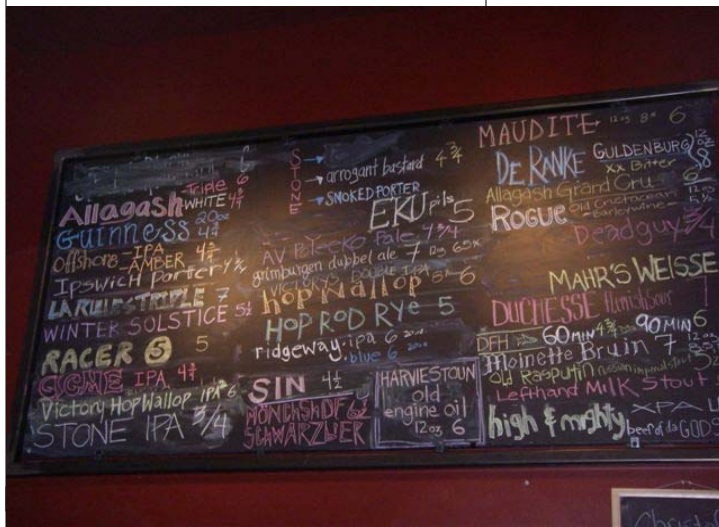 Allagash Triple 6
WHITE 4¾
Guinness 20oz 4¾
Offshore IPA 4¾
AMBER
Ipswich Porter 4¾
LA RULLES TRIPLE 7
WINTER SOLSTICE 5½
RACER 5 5
IPA 4¾
Victory HopWallop IPA 6
STONE IPA 3/4
STONE
arrogant bastard 4¾
SMOKED PORTER
EKU pils 5
AV Pale 4¾
grimburgen dubbel ale 7 12oz 6.5%
VICTORY'S DOUBLE IPA
hop Wallop 6
HOP ROD RYE 5
ridgeway: ipa 6 20oz
blue 6 20oz
SIN 4½
MÖNCHSHOF 6½
SCHWARZBIER
HARVIESTOUN
old
engine oil
12oz 6
MAUDITE 12oz 8% 6
DE RANKE GULDENBURG
XX Bitter
Allagash Grand Cru 6
ROGUE Old Crustacean
Barleywine
Deadguy 3/4
MAHR'S WEISSE
DUCHESSE flemish sour
DFH 60 MIN 4¾ 90 MIN 6
Moinette Bruin 7
Old Rasputin russian imperial stout
Lefthand Milk Stout
high & mighty XPA
beer of da GODS